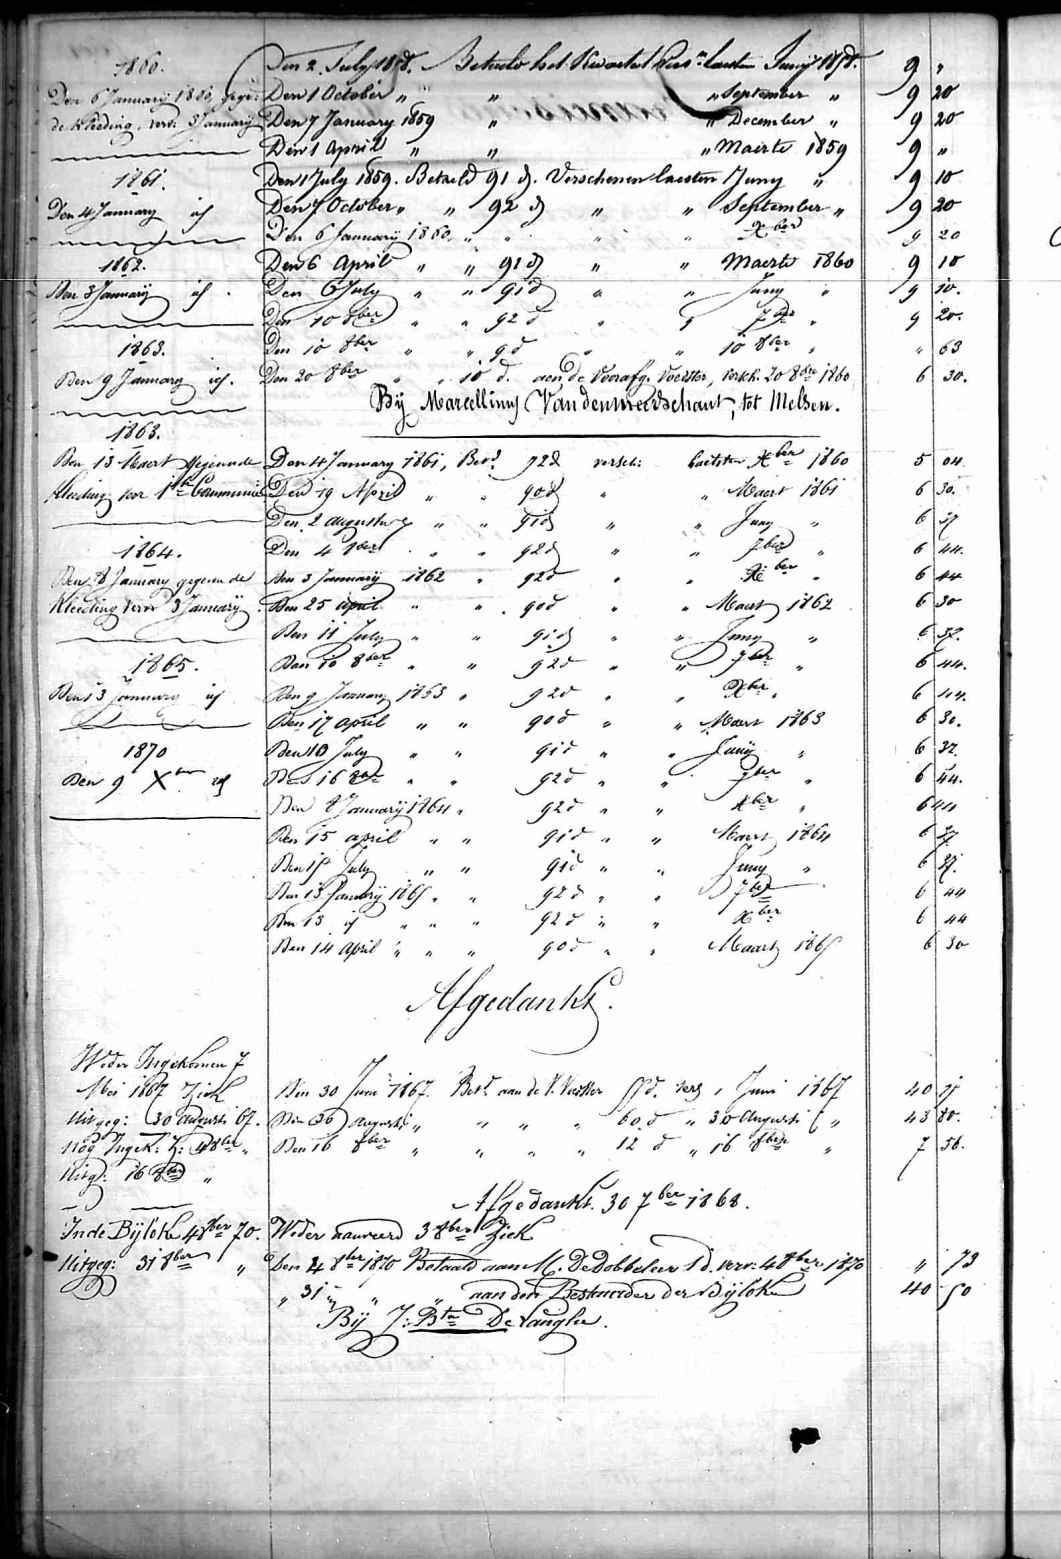 1860.
Den 6 January 1860, gegev:
de kleeding, verv: 3 January
1861.
Den 4 January id
1862.
Den 3 Januarij id.
1863.
Den 9 January id.
1863.
Den 13 Maert gegeven de
kleeding voor 1ste Communie
1864.
Den 8 January gegeven de
Kleeding verv 3 Januarij
1865.
Den 13 January id
1870
Den 9 Xber id
Weder Ingekomen 7
Mei 1867 Ziek
Uitgeg: 30 augusti 67.
Nog Ingek: Z: 4 8ber "
Uitg: 16 8ber "
In de Bijloke 4 8ber 70.
Uitgeg: 31 8ber "
Den 2 July 1858. Betaeld het Kwartael laesten Junij 1858. 9 "
Den 1 October " " " September " 9 20
Den 7 January 1859 " " December " 9 20
Den 1 April " " " Maerte 1859 9 "
Den 1 July 1859. Betaeld 91 d. Verschenen laesten Juny " 9 10
Den 7 October " " 92 d " " September " 9 20
Den 6 Januarij 1860. " " " " Xber 9 20
Den 6 April " " 91 d " " Maerte 1860 9 10
Den 6 July " " 91 d " " Juny " 9 10.
Den 10 8ber " " 92 d " " 7ber " 9 20.
Den 10 8ber " " 9 d " " 10 8ber " " 63
Den 20 8ber " " 10 d. aen de Voorafg. Voedster, versch. 20 8bre 1860 6 30.
Bij Marcellinus Vandenmeerschaut, tot Melsen.
Den 4 January 1861, Bet. 72 d versch: laetsten Xber 1860 5 04
Den 19 April " " 90 d " " Maert 1861 6 30.
Den 2 augusty " " 91 d " " Juny " 6 37
Den 4 8ber " " 92 d " " 7ber " 6 44.
Den 3 Januarij 1862 " 92 d " " Xber " 6 44
Den 25 april " " 90 d " " Maert 1862 6 30
Den 11 July " " 91 d " " Juny " 6 37.
Den 10 8ber " " 92 d " " 7ber " 6 44.
Den 9 January 1863 " 92 d " " Xber " 6 44.
Den 17 april " " 90 d " " Maert 1863 6 30.
Den 10 July " " 91 d " " Junij " 6 37.
Den 16 8ber " " 92 d " " 7ber " 6 44.
Den 8 Januarij 1864 " 92 d " " Xber " 6 44
Den 15 april " " 91 d " " Maert 1864 6 37
Den 15 July " " 91 d " " Juny " 6 37.
Den 13 Januarij 1865 " " 92 d " " 7ber 6 44
Den 13 id " " " 92 d " " Xber 6 44
Den 14 April " " " 90 d " " Maart 1865 6 30
Afgedankt.
Den 30 Juni 1867. Bet. aan de V. Voedster 55 d. vers 1 Juni 1867 40 15
Den 30 Augusti " " " " 60. d " 30 Augusti " 43 80.
Den 16 8ber " " " " 12 d " 16 8ber " 7 56.
Afgedankt. 30 7ber 1868.
Weder aanveerd 3 8ber Ziek
Den 4 8ber 1870 Betaald aan M. De Dobbeleer 1 d. verv: 4 8ber 1870 " 73
" 31 " " " aan den Bestuurder der Bijloke 40 50
Bij J: Bte De Langhe.